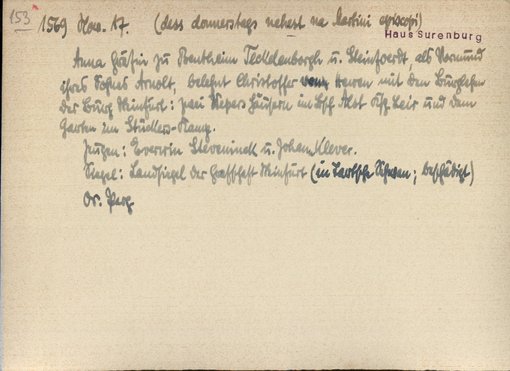 153
1569 Nov. 17. (dess donnerstags nehest na Martini episcopi)
Haus Surenburg
Anna Gräfin zu Bentheim Tecklenborgh u. Steinfoerdt, als Vormund
ihres Sohnes Arnolt, belehnt Christoffer von Heven mit den Burglehen
der Burg Steinfurt: zwei Häusern im Ksp. Alst Ksp. Leir und dem
Garten im Stüdters-Kamp.
Zeugen: Everwin Steveninck u. Johan Klever.
Siegel: Landsiegel der Grafschaft Steinfurt (in beschädigt)
Or. Perg